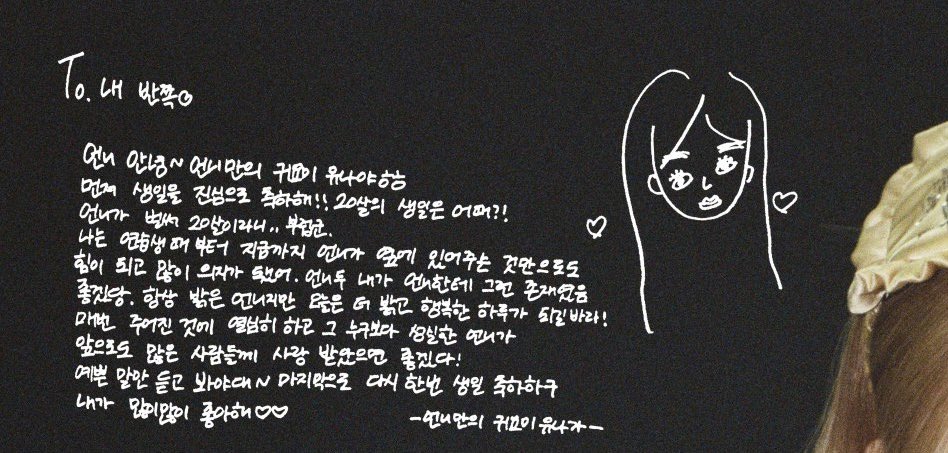 To. 내 반쪽♡
언니 안녕~ 언니만의 귀요미 유나야ㅎㅎ
먼저 생일을 진심으로 축하해!! 20살의 생일은 어때?!
언니가 벌써 20살이라니.. 부럽군.
나는 연습생 때 부터 지금까지 언니가 옆에 있어주는 것만으로도
힘이 되고 많이 의지가 됐어. 언니두 내가 언니한테 그런 존재였음
좋겠당. 항상 밝은 언니지만 오늘은 더 밝고 행복한 하루가 되길 바라!
매번 주어진 것에 열심히 하고 그 누구보다 성실한 언니가
앞으로도 많은 사람들께 사랑 받았으면 좋겠다!
예쁜 말만 듣고 봐야대~ 마지막으로 다시 한번 생일 축하하구
내가 많이많이 좋아해♡♡
-언니만의 귀요미 유나가-